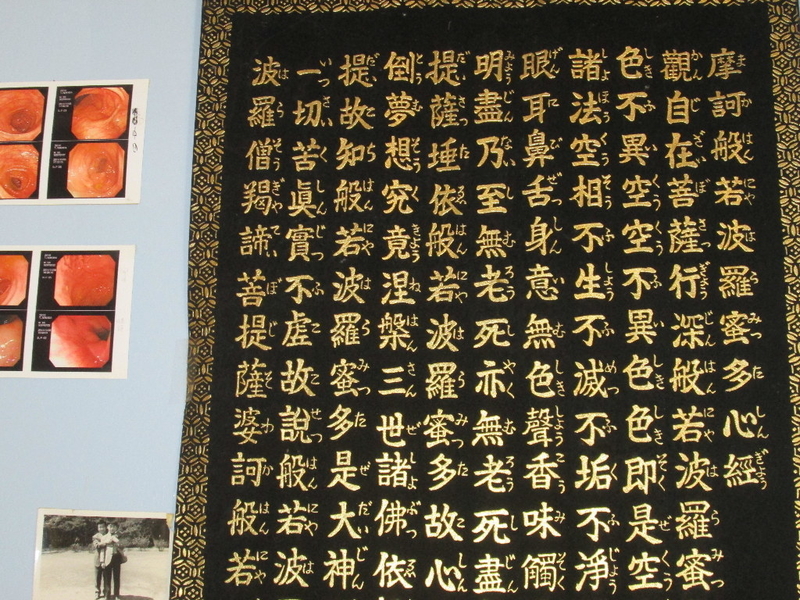 摩訶般若波羅蜜多心經
觀自在菩薩行深般若波羅蜜
色不異空空不異色色即是空
諸法空相不生不滅不垢不淨
眼耳鼻舌身意無色聲香味觸
明盡乃至無老死亦無老死盡
提薩埵依般若波羅蜜多故心
倒夢想究竟涅槃三世諸佛依
提故知般若波羅蜜多是大神
一切苦眞實不虛故說般若波
波羅僧羯諦菩提薩婆訶般若